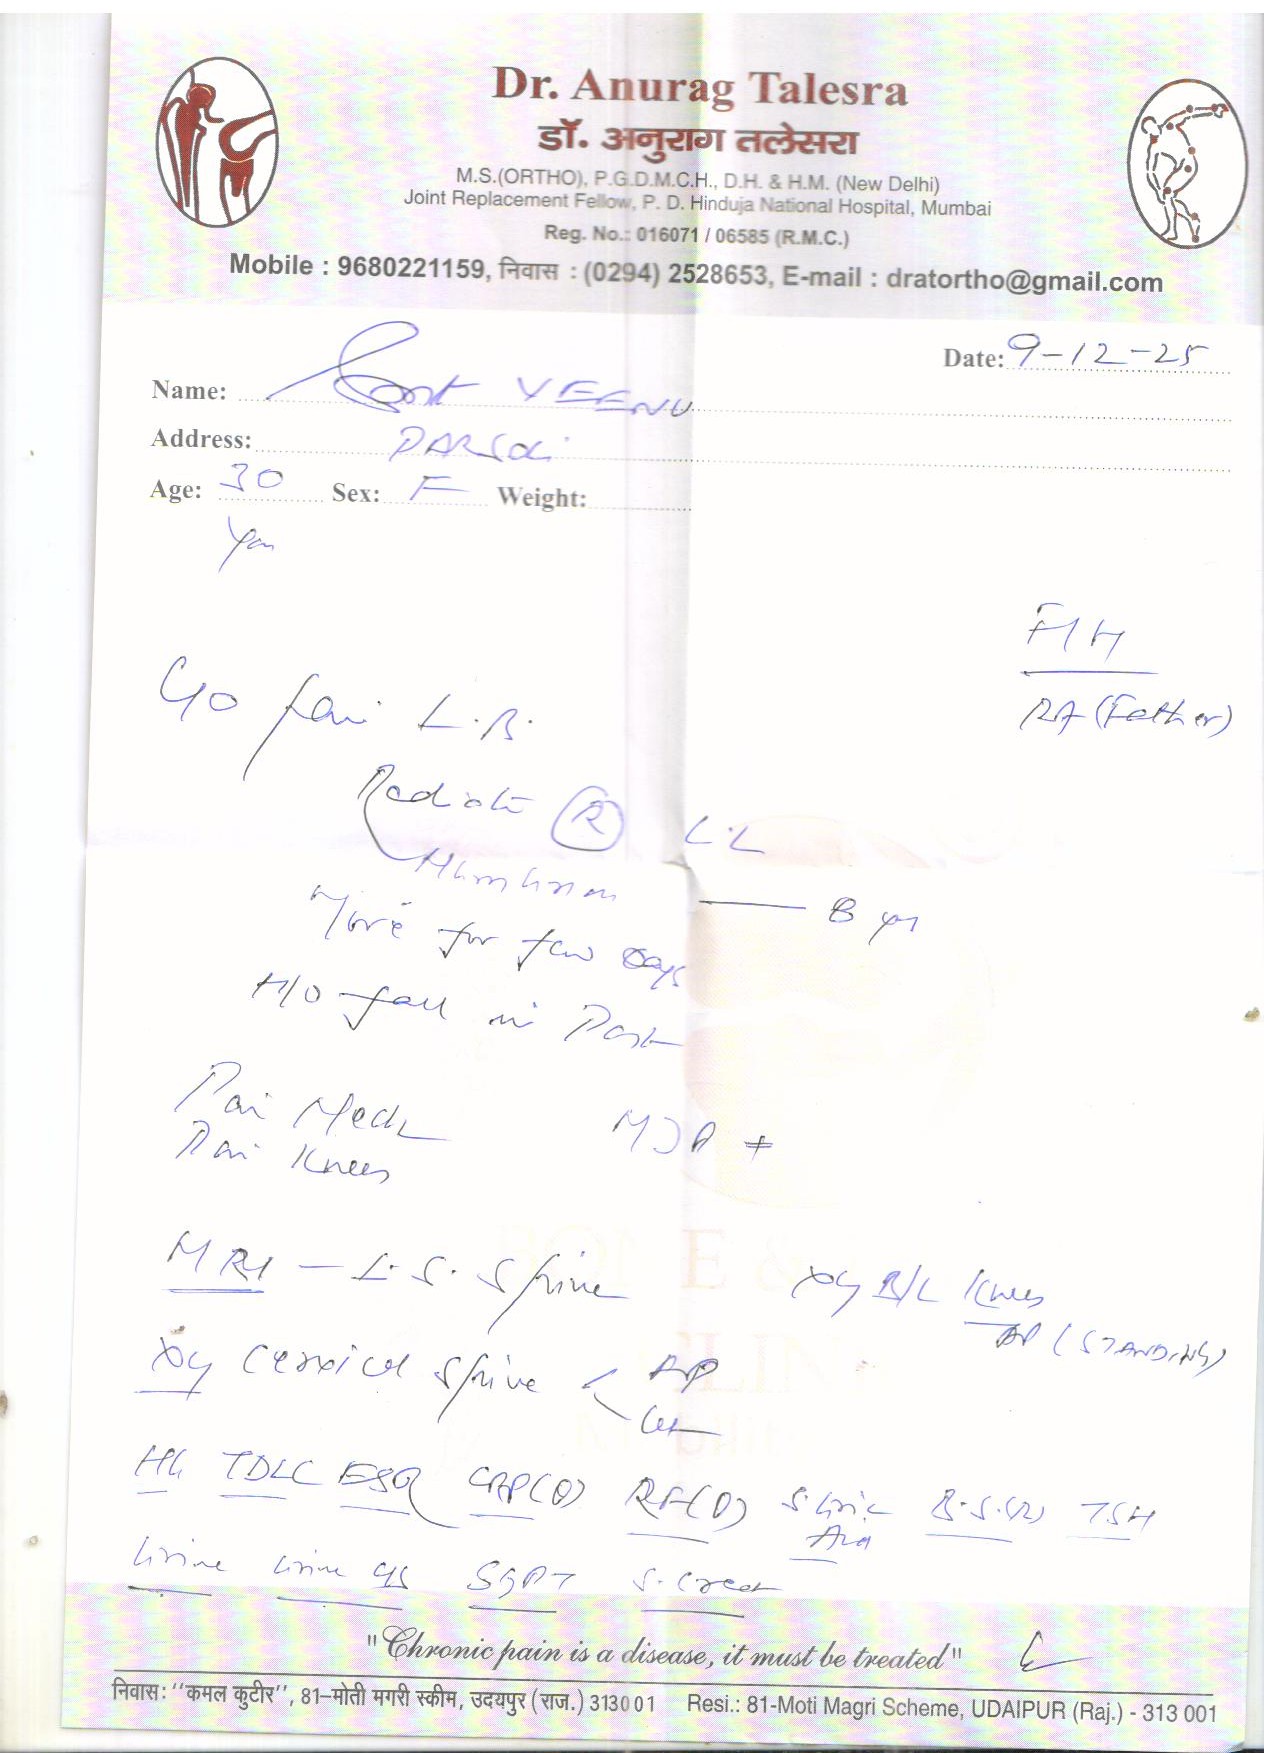 Dr. Anurag Talesra
डॉ. अनुराग तलेसरा
M.S.(ORTHO), P.G.D.M.C.H., D.H. & H.M. (New Delhi)
Joint Replacement Fellow, P. D. Hinduja National Hospital, Mumbai
Reg. No.: 016071 / 06585 (R.M.C.)
Mobile : 9680221159, निवास : (0294) 2528653, E-mail : dratortho@gmail.com
Date: 9-12-25
Name: VEENU
Address:
Age: 30 Sex: F Weight:
F/H
RA (Father)
C/o Pain L.B.
Radiate (R) L.L
yr
More for few days
H/O fall in Past
Pain Neck
Pain Knees
MRI - L.S. Spine
Xy B/L Knees
AP (STANDING)
Xy Cervical Spine < AP
Lat
Hb TDLC ESR CRP(Q) RF(Q) S. Uric Acid B.S.(R) TSH
Urine Urine c/s SGPT S. Creat
"Chronic pain is a disease, it must be treated"
निवास: ‘‘कमल कुटीर’’, 81–मोती मगरी स्कीम, उदयपुर (राज.) 313001 Resi.: 81-Moti Magri Scheme, UDAIPUR (Raj.) - 313 001